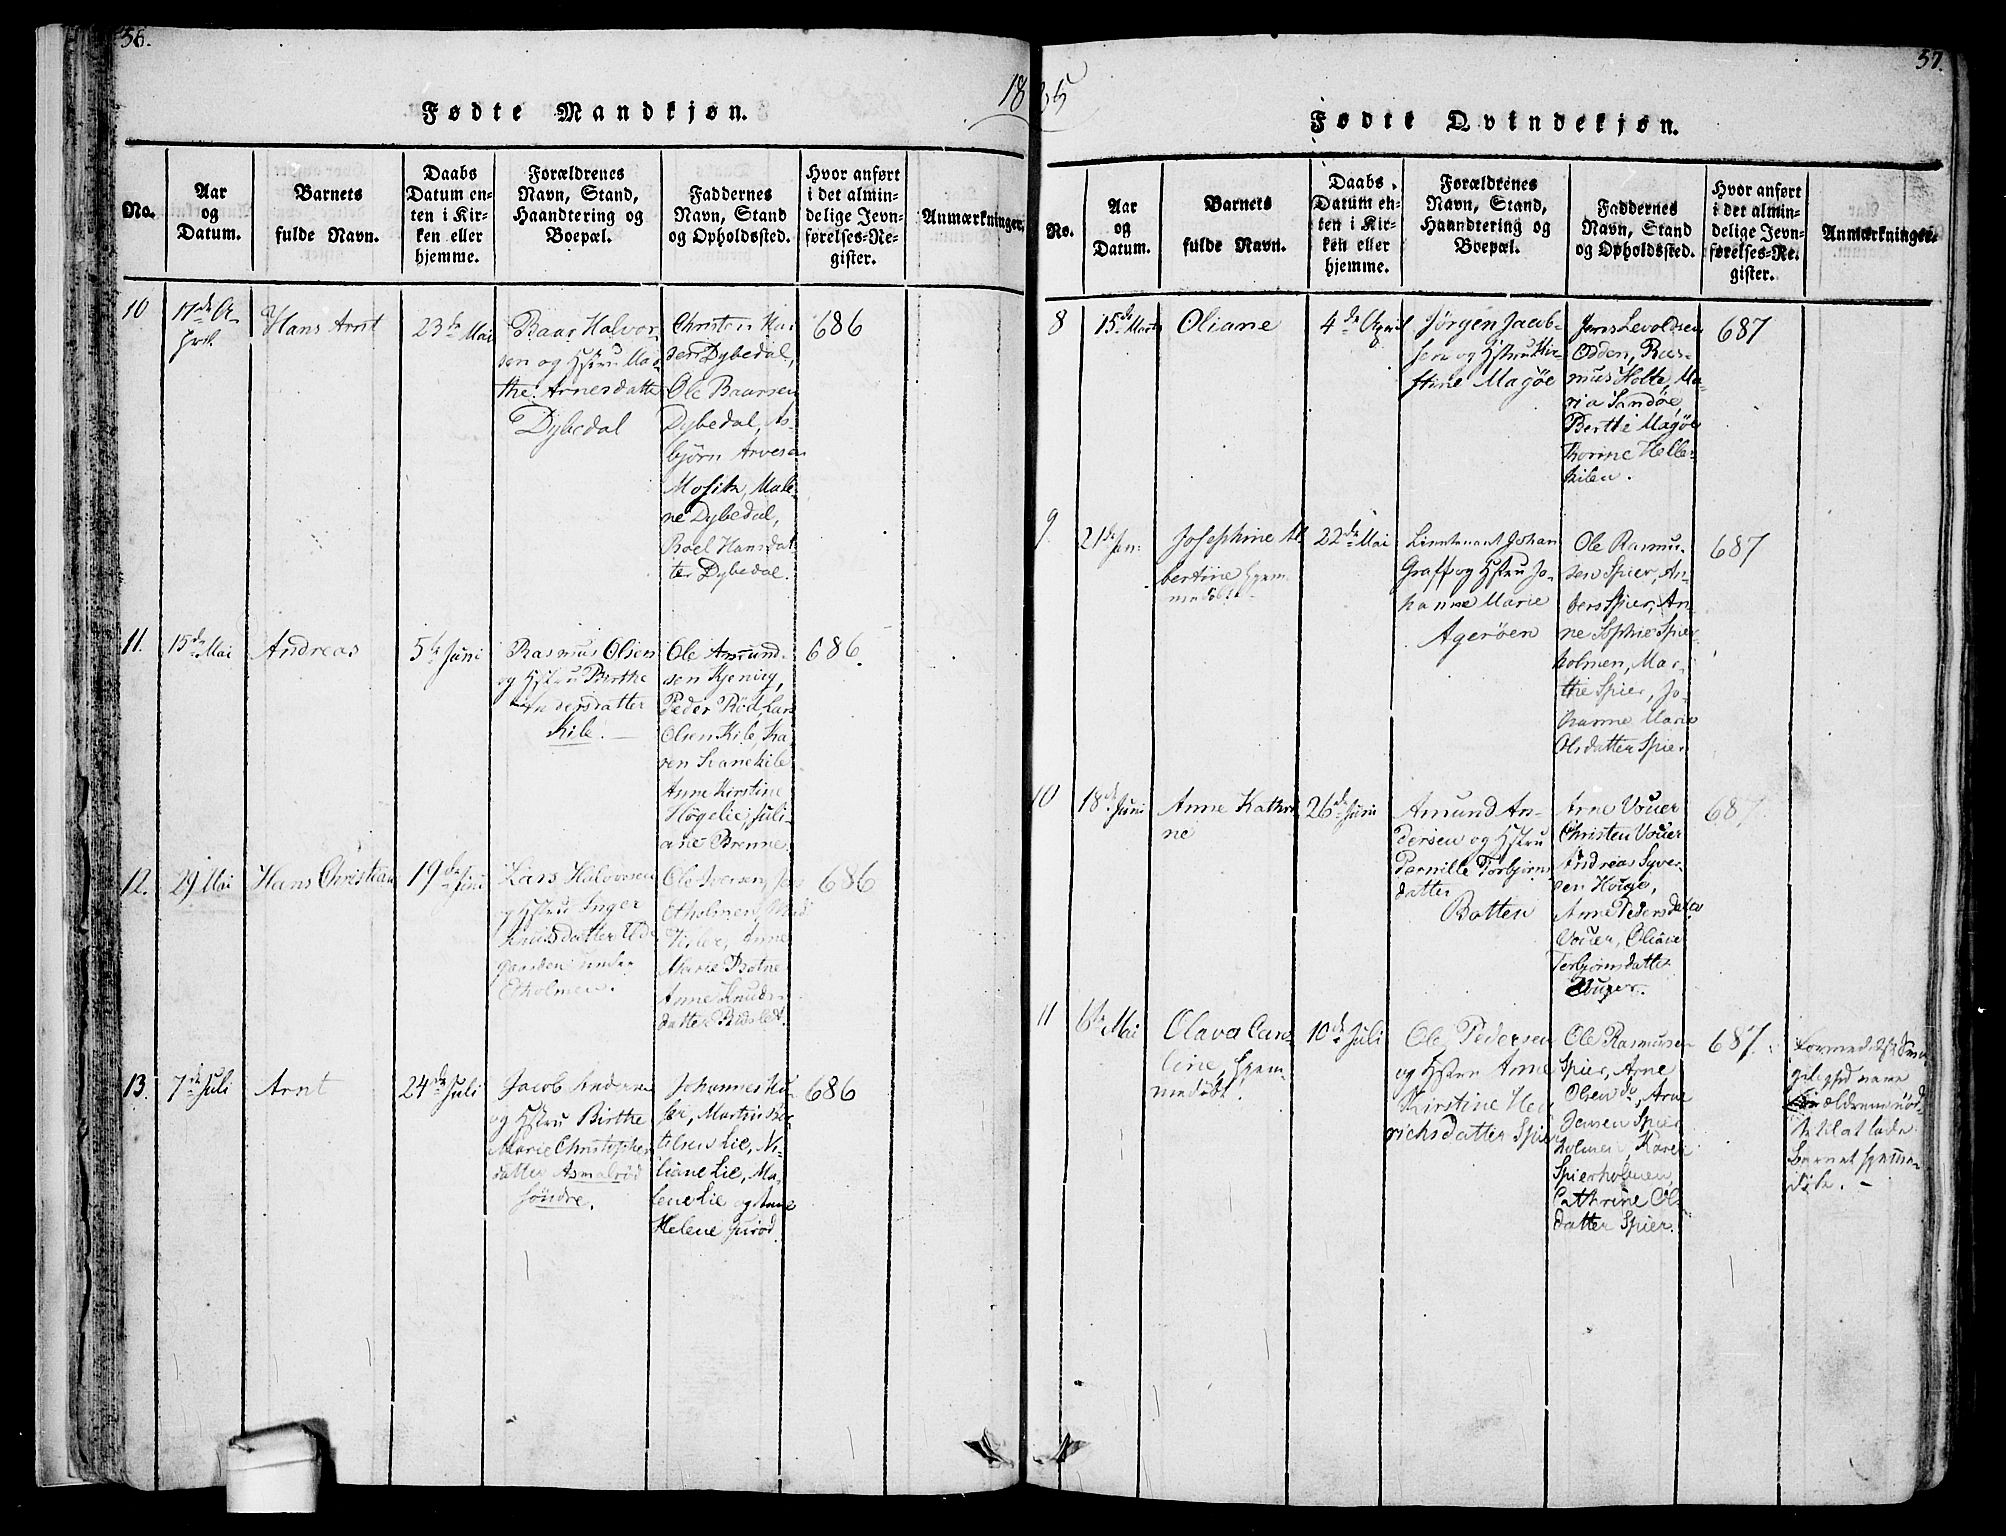 56.
18
Fødte Mandkjøn.
No.
Aar
og
Datum.
Barnets
fulde Navn.
Daabs
Datum en-
ten i Kir-
ken eller
hjemme.
Forældrenes
Navn, Stand,
Haandtering og
Boepæl.
Faddernes
Navn, Stand
og Opholdssted.
Hvor anført
i det almin-
delige Jevn-
førelses-Re-
gister.
Anmærkninger.
10
17de A-
Hans Arnt
23de Mai
Baar Halvor-
sen og Hstru Mar-
the Arnesdatter
Dybedal
Christen Han-
sen Dybedal,
Ole Baarsen
Dybedal, As-
björn Arvesen
Male-
ne Dybedal,
Boel Hansdat-
ter Dybedal.
686
11.
15de Mai
Andreas
5te Juni
Rasmus Olsen
og Hstru Birthe
Andersdatter
Kile.
Ole Amund-
sen Kjenney,
Peder Röd, Lars
Olsen Kile, Ka-
ren Svanekile
Anne Kirstine
Høgelie, Juli-
ane Brenne.
686.
12.
29 Mai
Hans Christian
19de Juni
Lars Halvorsen
og Hstru Inger
Knudsdatter
under
Etholmen.
Ole Iversen,
Etholmen,
Anne
Marie Botne
Anne Knuds-
datter
686
13.
7de Juli
Arnt
24de Juli
Jacob Andersen
og Hstru Birthe
Marie Christophers-
datter Asmalröd
söndre.
Johannes
Martin
Lie,
liane Lie, Ma-
lene Lie og Anne
Helene
686
57.
35
Fødte Qvindekjøn.
No.
Aar
og
Datum.
Barnets
fulde Navn.
Daabs
Datum en-
ten i Kir-
ken eller
hjemme.
Forældrenes
Navn, Stand,
Haandtering og
Boepæl.
Faddernes
Navn, Stand
og Opholdssted.
Hvor anført
i det almin-
delige Jevn-
førelses-Re-
gister.
Anmærkninger.
8
15de Marts
Oliane
4de April
Jørgen Jacob-
sen og Hstru Kir-
stine Magöe
Jens Levoldsen
Odden, Ras-
mus Holte, Ma-
ria Sandöe
Berthe Magöe
Thorine Helle-
kilen.
687
9.
21de Jan:
Josephine Al-
bertine hjem-
medöbt.
22de Mai
Lieutenant Johan
Graff og Hstru Jo-
hanne Marie
Ageröen
Ole Rasmu-
sen Spier, An-
ders Spier, An-
ne Sophie Spier-
holmen, Mar-
the Spier, Jo-
hanne Marie
Olsdatter Spier
687
10
18de Juni
Anne Kathri-
ne
26de Juni
Amund An-
dersen og Hstru
Pernille Torbjørns-
datter
Botten
Arne Vouer
Christen Vouer
Andreas Syver-
sen Houge,
Anne Pedersdatter
Vouer, Oliane
Torbjørnsdatter
687.
11
6te Mai
Olava Caro-
line, hjem-
medöbt.
10de Juli
Ole Pedersen
og Hstru Anne
Kirstine Hen-
richsdatter Spier
Ole Rasmusen
Spier, Arne
Olsen do, Arne
Jensen Spier-
holmen, Karen
Spierholmen,
Cathrine Ols-
datter Spier.
687.
Barnet hjemme-
döbe. –